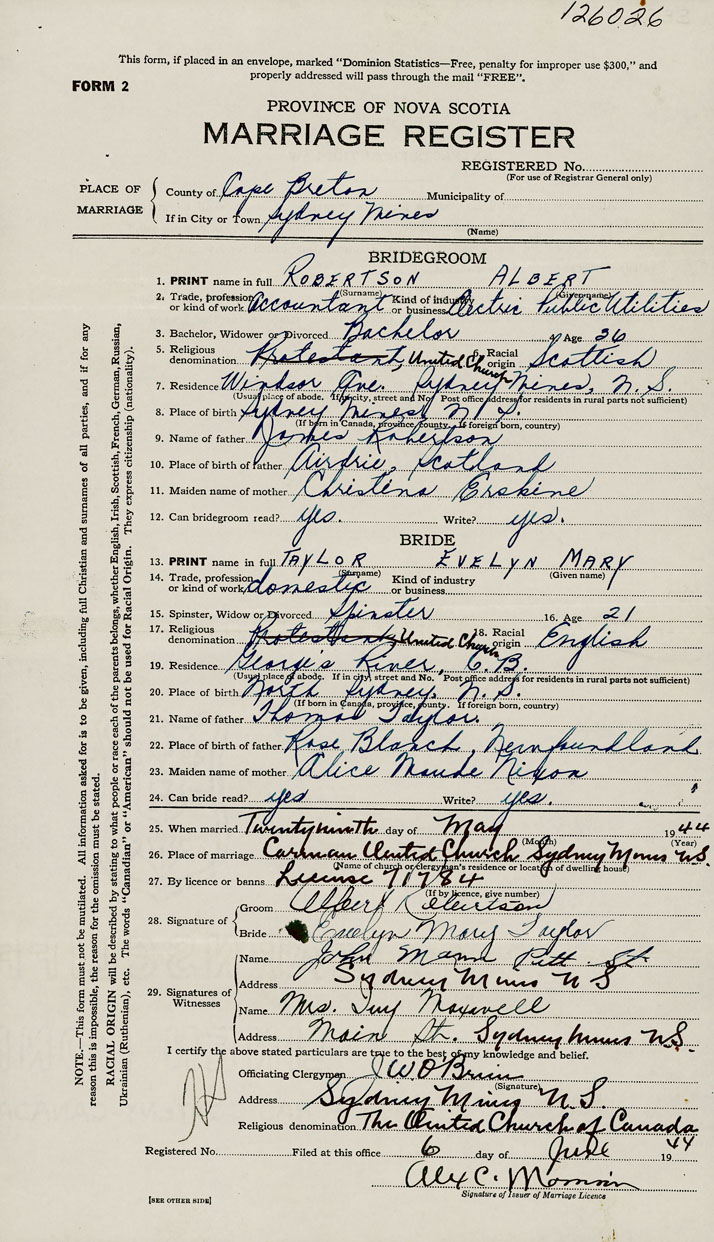 126026
This form, if placed in an envelope, marked "Dominion Statistics—Free, penalty for improper use $300," and
properly addressed will pass through the mail "FREE".
FORM 2
PROVINCE OF NOVA SCOTIA
MARRIAGE REGISTER
REGISTERED No.
(For use of Registrar General only)
PLACE OF MARRIAGE
County of Cape Breton Municipality of
If in City or Town Sydney Mines
(Name)
BRIDEGROOM
1. PRINT name in full ROBERTSON ALBERT
(Surname) (Given name)
2. Trade, profession or kind of work Accountant Kind of industry or business Electric Public Utilities
3. Bachelor, Widower or Divorced Bachelor 4. Age 26
5. Religious denomination Protestant, United Church 6. Racial origin Scottish
7. Residence Windsor Ave. Sydney Mines, N.S.
(Usual place of abode. If in city, street and No. Post office address for residents in rural parts not sufficient)
8. Place of birth Sydney Mines, N.S.
(If born in Canada, province, county. If foreign born, country)
9. Name of father James Robertson
10. Place of birth of father Airdrie, Scotland
11. Maiden name of mother Christina Erskine
12. Can bridegroom read? yes. Write? yes.
BRIDE
13. PRINT name in full TAYLOR EVELYN MARY
(Surname) (Given name)
14. Trade, profession or kind of work domestic Kind of industry or business
15. Spinster, Widow or Divorced Spinster 16. Age 21
17. Religious denomination Protestant, United Church 18. Racial origin English
19. Residence George's River, C.B.
(Usual place of abode. If in city, street and No. Post office address for residents in rural parts not sufficient)
20. Place of birth North Sydney, N.S.
(If born in Canada, province, county. If foreign born, country)
21. Name of father Thomas Taylor.
22. Place of birth of father Rose Blanch, Newfoundland
23. Maiden name of mother Alice Maude Nixon
24. Can bride read? yes Write? yes.
25. When married Twenty ninth day of May 1944
(Month) (Year)
26. Place of marriage Carman United Church Sydney Mines N.S.
(Name of church or clergyman's residence or location of dwelling house)
27. By licence or banns License 71784
(If by licence, give number)
28. Signature of
Groom Albert Robertson
Bride Evelyn Mary Taylor
29. Signatures of Witnesses
Name John Mann Pitt. St.
Address Sydney Mines N S
Name Mrs. Maxwell
Address Main St. Sydney Mines N.S.
I certify the above stated particulars are true to the best of my knowledge and belief.
Officiating Clergyman J W O'Brien
(Signature)
Address Sydney Mines N.S.
Religious denomination The United Church of Canada
Registered No. Filed at this office 6 day of June 1944
Alex C.
Signature of Issuer of Marriage Licence
[SEE OTHER SIDE]
NOTE.—This form must not be mutilated. All information asked for is to be given, including full Christian and surnames of all parties, and if for any
reason this is impossible, the reason for the omission must be stated.
RACIAL ORIGIN will be described by stating to what people or race each of the parents belongs, whether English, Irish, Scottish, French, German, Russian,
Ukrainian (Ruthenian), etc. The words "Canadian" or "American" should not be used for Racial Origin. They express citizenship (nationality).